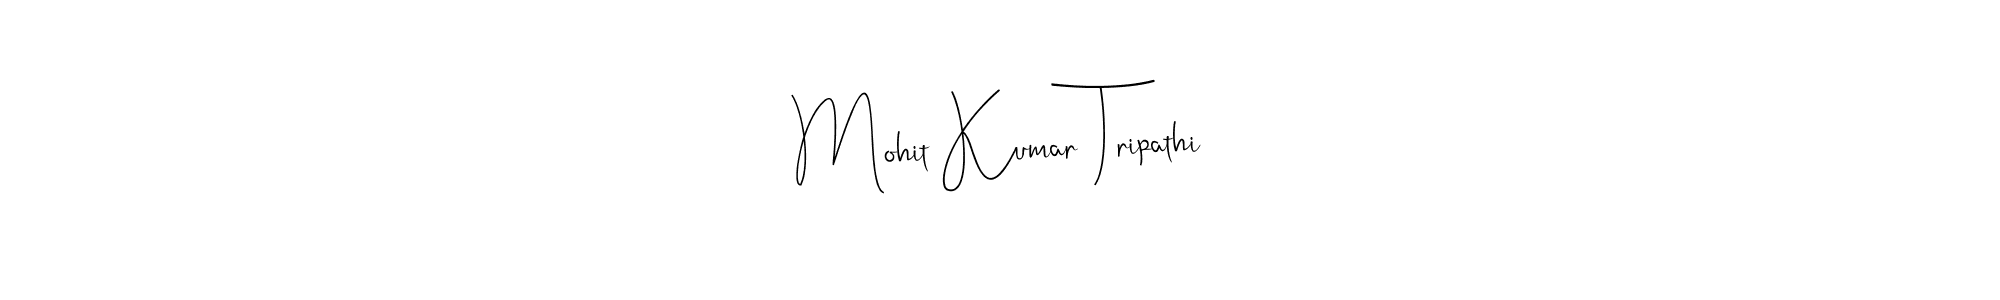 Mohit Kumar Tripathi